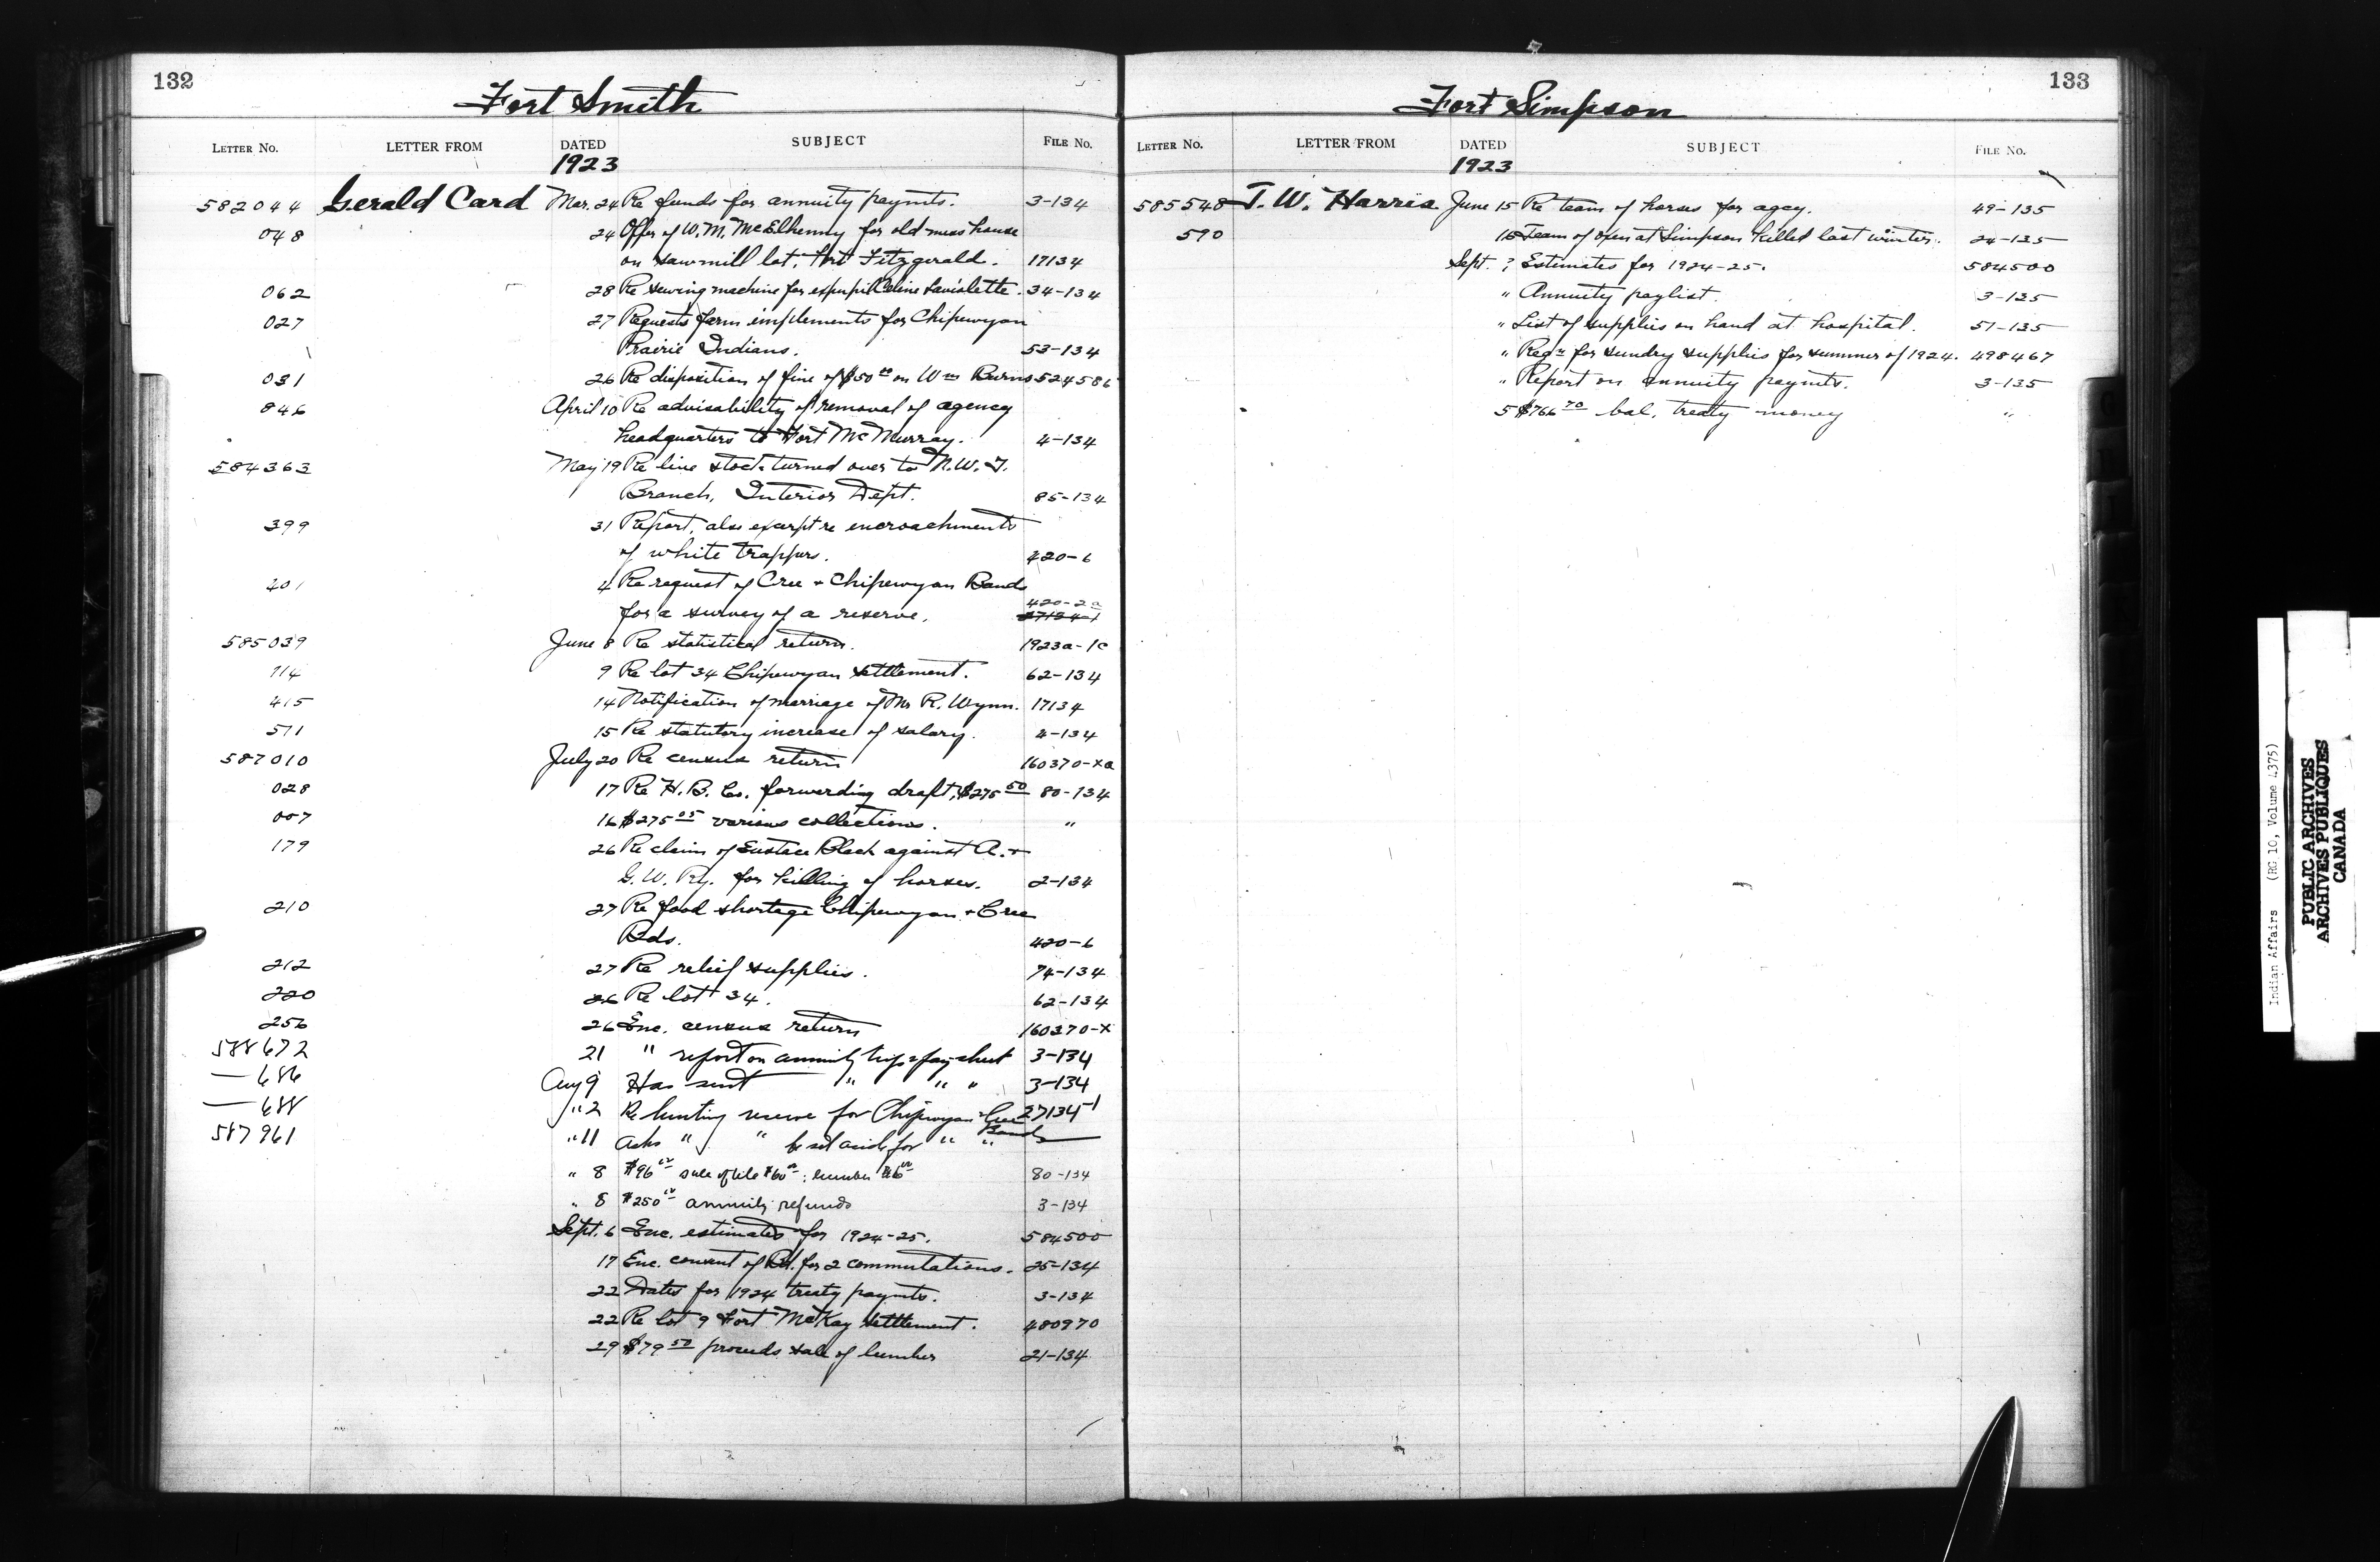 132
Fort Smith
LETTER NO. LETTER FROM DATED SUBJECT FILE NO.
1923
582044 Gerald Card Mar. 24 Re funds for annuity paymts. 3-134
048 24 Offer of W. M. McElhenny for old mess house
on sawmill lot, Fort Fitzgerald. 17134
062 28 Re sewing machine for expupil Celine Laviolette. 34-134
027 27 Requests farm implements for Chipewyan
Prairie Indians. 53-134
031 26 Re disposition of fine of $50.00 on Wm Burns 524586
846 April 10 Re advisability of removal of agency
headquarters to Fort McMurray. 4-134
584363 May 19 Re live stock turned over to N.W.T.
Branch, Interior Dept. 85-134
399 31 Report, also excerpt re encroachments
of white trappers. 420-6
401 4 Re request of Cree + Chipewyan Bands
420-2a
for a survey of a reserve. 27134-1
585039 June 8 Re statistical return. 1923a-1c
114 9 Re lot 34 Chipewyan settlement. 62-134
415 14 Notification of marriage of Mr R. Wynn. 17134
571 15 Re statutory increase of salary. 4-134
587010 July 20 Re census return 160370-xa
028 17 Re H. B. Co. forwarding draft, $275 50 80-134
007 16 $275 05 various collections. "
179 26 Re claim of Eustace Black against A. +
G. W. Ry. for killing of horses. 2-134
210 27 Re food shortage Chipewyan + Cree
Bds. 420-6
212 27 Re relief supplies. 74-134
220 26 Re lot 34. 62-134
256 26 Enc. census return 160370-x
588672 21 " report on annuity trip & pay sheet 3-134
— 686 Aug 9 Has sent " " " 3-134
— 688 " 2 Re hunting reserve for Chipewyan & Cree 27134-1
Bands
587961 " 11 Asks " " be set aside for " "
" 8 $96 sale of $60; lumber $36 80-134
" 8 $250 annuity refunds 3-134
Sept. 6 Enc. estimates for 1924-25. 584500
17 Enc. consent of Bd. for 2 commutations. 25-134
22 Dates for 1924 treaty paymts. 3-134
22 Re lot 9 Fort McKay settlement. 480970
29 $79 50 proceeds sale of lumber 21-134
133
Fort Simpson
LETTER NO. LETTER FROM DATED SUBJECT FILE NO.
1923
585548 T. W. Harris June 15 Re team of horses for agcy. 49-135
590 15 Team of oxen at Simpson killed last winter. 24-135
Sept. ? Estimates for 1924-25. 584500
" Annuity paylist. 3-135
" List of supplies on hand at hospital. 51-135
" Reqn for sundry supplies for summer of 1924. 498467
" Report on annuity paymts. 3-135
5 $766 70 bal. treaty money "
Indian Affairs (RG 10, Volume 4375)
PUBLIC ARCHIVES
ARCHIVES PUBLIQUES
CANADA